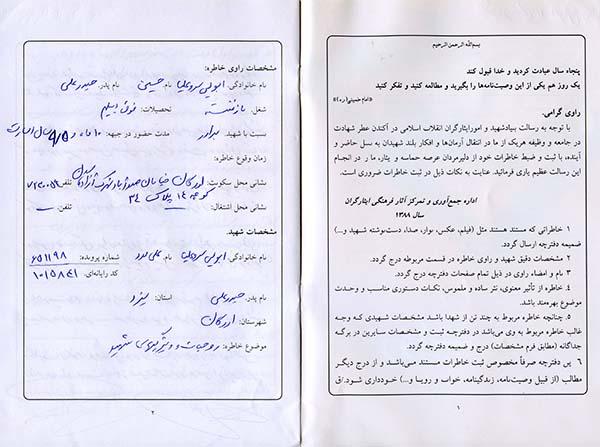 بسم‌الله الرحمن الرحیم
پنجاه سال عبادت کردید و خدا قبول کند
یک روز هم یکی از این وصیت‌نامه‌ها را بگیرید و مطالعه کنید و تفکر کنید
«امام خمینی(ره)»
راوی گرامی،
با توجه به رسالت بنیادشهید و امورایثارگران انقلاب اسلامی در آکندن عطر شهادت
در جامعه و وظیفه هریک از ما در انتقال آرمان‌ها و افکار بلند شهیدان به نسل حاضر و
آینده، با ثبت و ضبط خاطرات خود از دلیرمردان عرصه حماسه و ایثار، ما را در انجام
این رسالت عظیم یاری فرمائید. عنایت به نکات ذیل در ثبت خاطرات ضروری است.
اداره جمع‌آوری و تمرکز آثار فرهنگی ایثارگران
سال ۱۳۸۸
۱ خاطراتی که مستند هستند مثل (فیلم، عکس، نوار، صدا، دست‌نوشته شهید و...)
ضمیمه دفترچه ارسال گردد.
۲ مشخصات دقیق شهید و راوی خاطره در قسمت مربوطه درج گردد.
۳ نام و امضاء راوی در ذیل تمام صفحات دفترچه درج گردد.
۴ خاطره از تأثیر معنوی، نثر ساده و ملموس، نکات دستوری مناسب و وحدت
موضوع بهره‌مند باشد.
۵ چنانچه خاطره مربوط به چند تن از شهدا باشد مشخصات شهیدی که وجه
غالب خاطره مربوط به وی می‌باشد در دفترچه ثبت و مشخصات سایرین در برگه
جداگانه (مطابق فرم مشخصات) درج و ضمیمه دفترچه گردد.
۶ این دفترچه صرفاً مخصوص ثبت خاطرات مستند می‌باشد و از درج دیگر
مطالب (از قبیل وصیت‌نامه، زندگینامه، خواب و رویا و...) خودداری شود.
۱
مشخصات راوی خاطره:
نام خانوادگی: نام: حسین نام پدر: حیدرعلی
شغل: بازنشسته تحصیلات: فوق دیپلم
نسبت با شهید: برادر مدت حضور در جبهه: ۱۰ ماه و سال اسارت
زمان وقوع خاطره:
نشانی محل سکونت: اردکان خیابان تلفن:
کوچه ۱۴ پلاک ۳۴
نشانی محل اشتغال: تلفن:
مشخصات شهید:
نام خانوادگی: نام: شماره پرونده: ۶۵۱۱۹۸
کد رایانه‌ای: ۱۰۱۵۸۴۱
نام پدر: حیدرعلی استان: یزد
شهرستان: اردکان
موضوع خاطره: روحیات و ویژگیهای شهید
۲